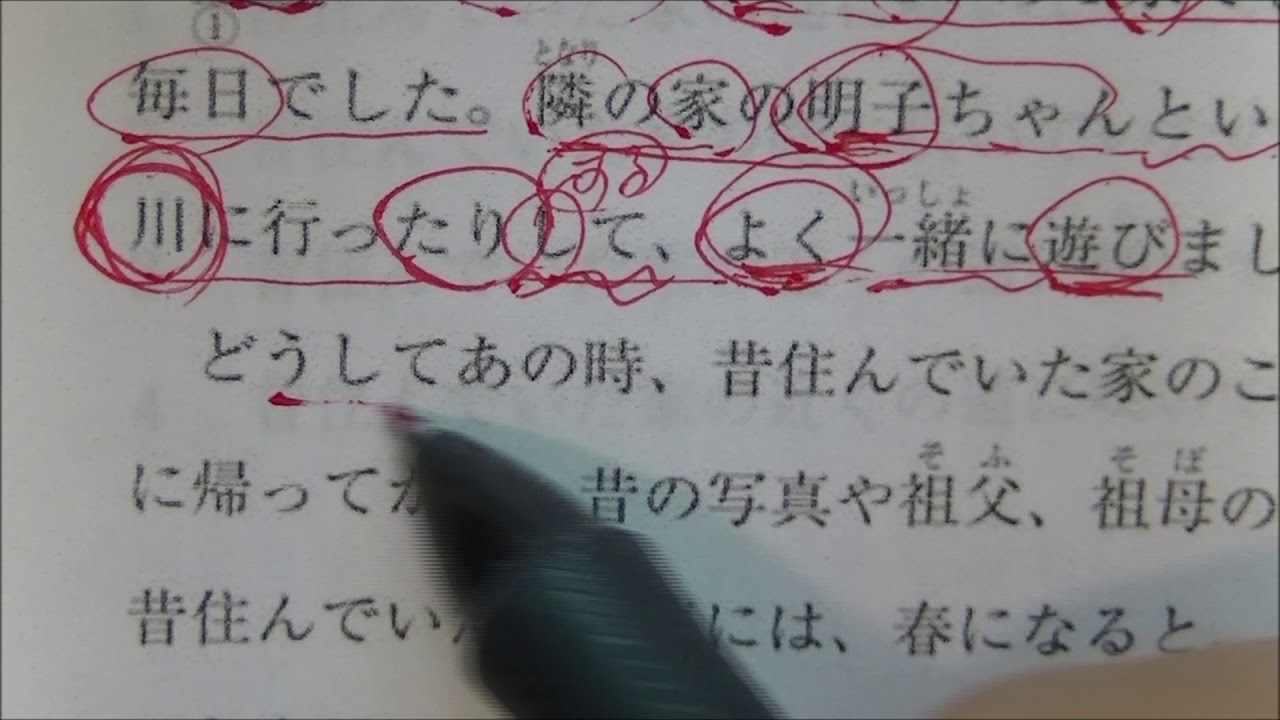 ①
毎日でした。隣の家の明子ちゃんとい
となり
する
川に行ったりして、よく一緒に遊びまし
いっしょ
どうしてあの時、昔住んでいた家のこ
に帰ってか 昔の写真や祖父、祖母の
そふ そぼ
昔住んでい には、春になると